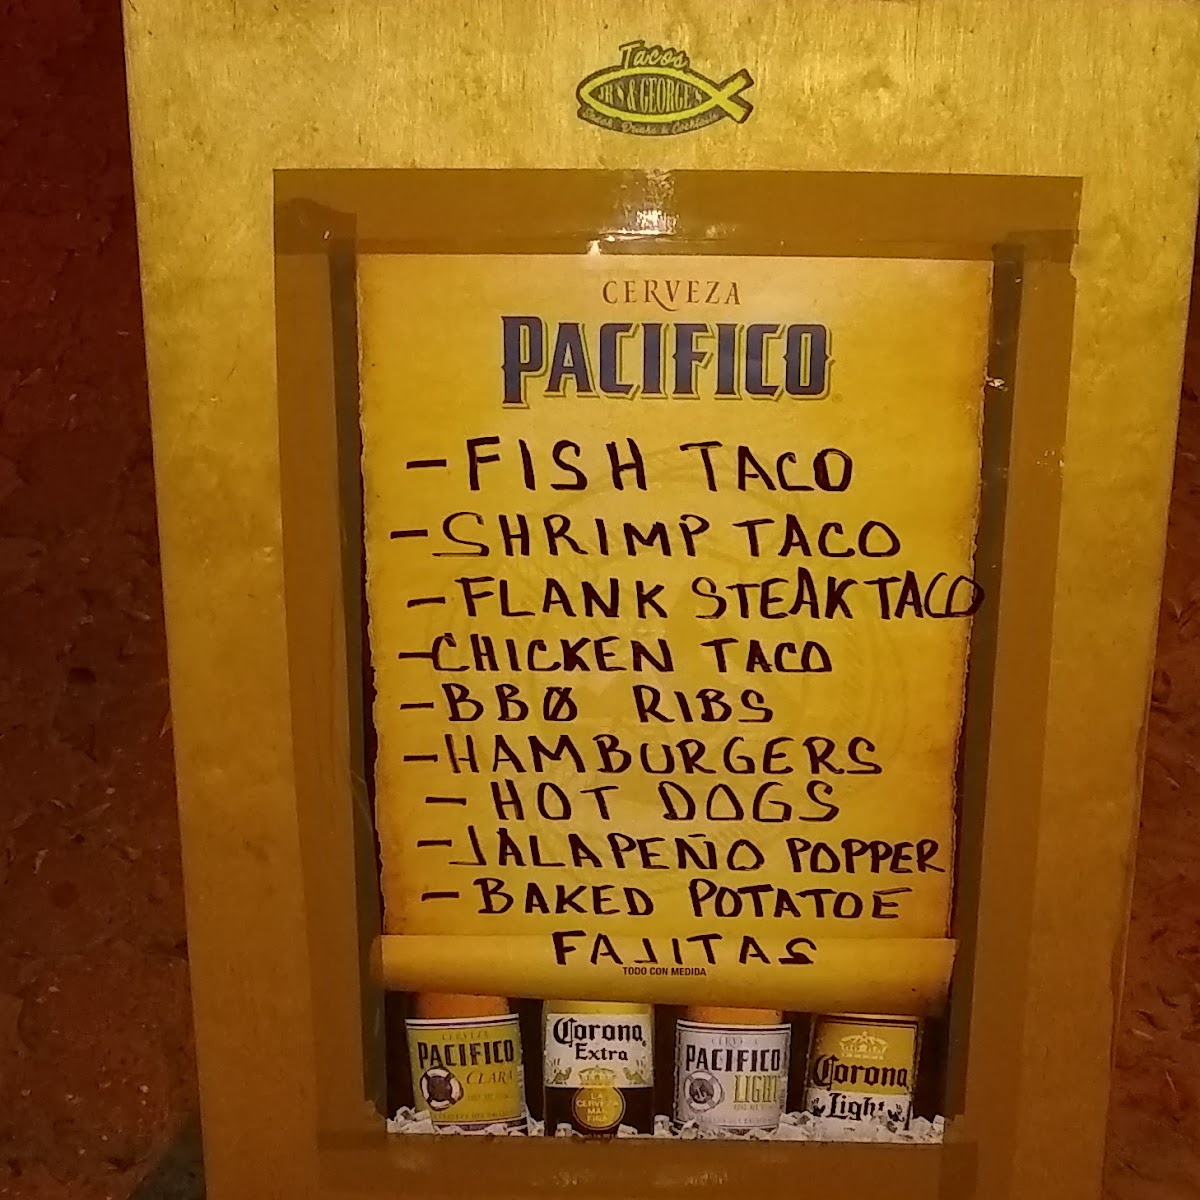 Tacos
JR'S & GEORGE'S
Snack Drinks & Cocktails
CERVEZA
PACIFICO
- FISH TACO
- SHRIMP TACO
- FLANK STEAK TACO
- CHICKEN TACO
- BBQ RIBS
- HAMBURGERS
- HOT DOGS
- JALAPEÑO POPPER
- BAKED POTATOE
FAJITAS
TODO CON MEDIDA
CERVEZA
PACIFICO
CLARA
Corona
Extra
LA
CERVEZA
MAS
FINA
CERVEZA
PACIFICO
LIGHT
Corona
Light